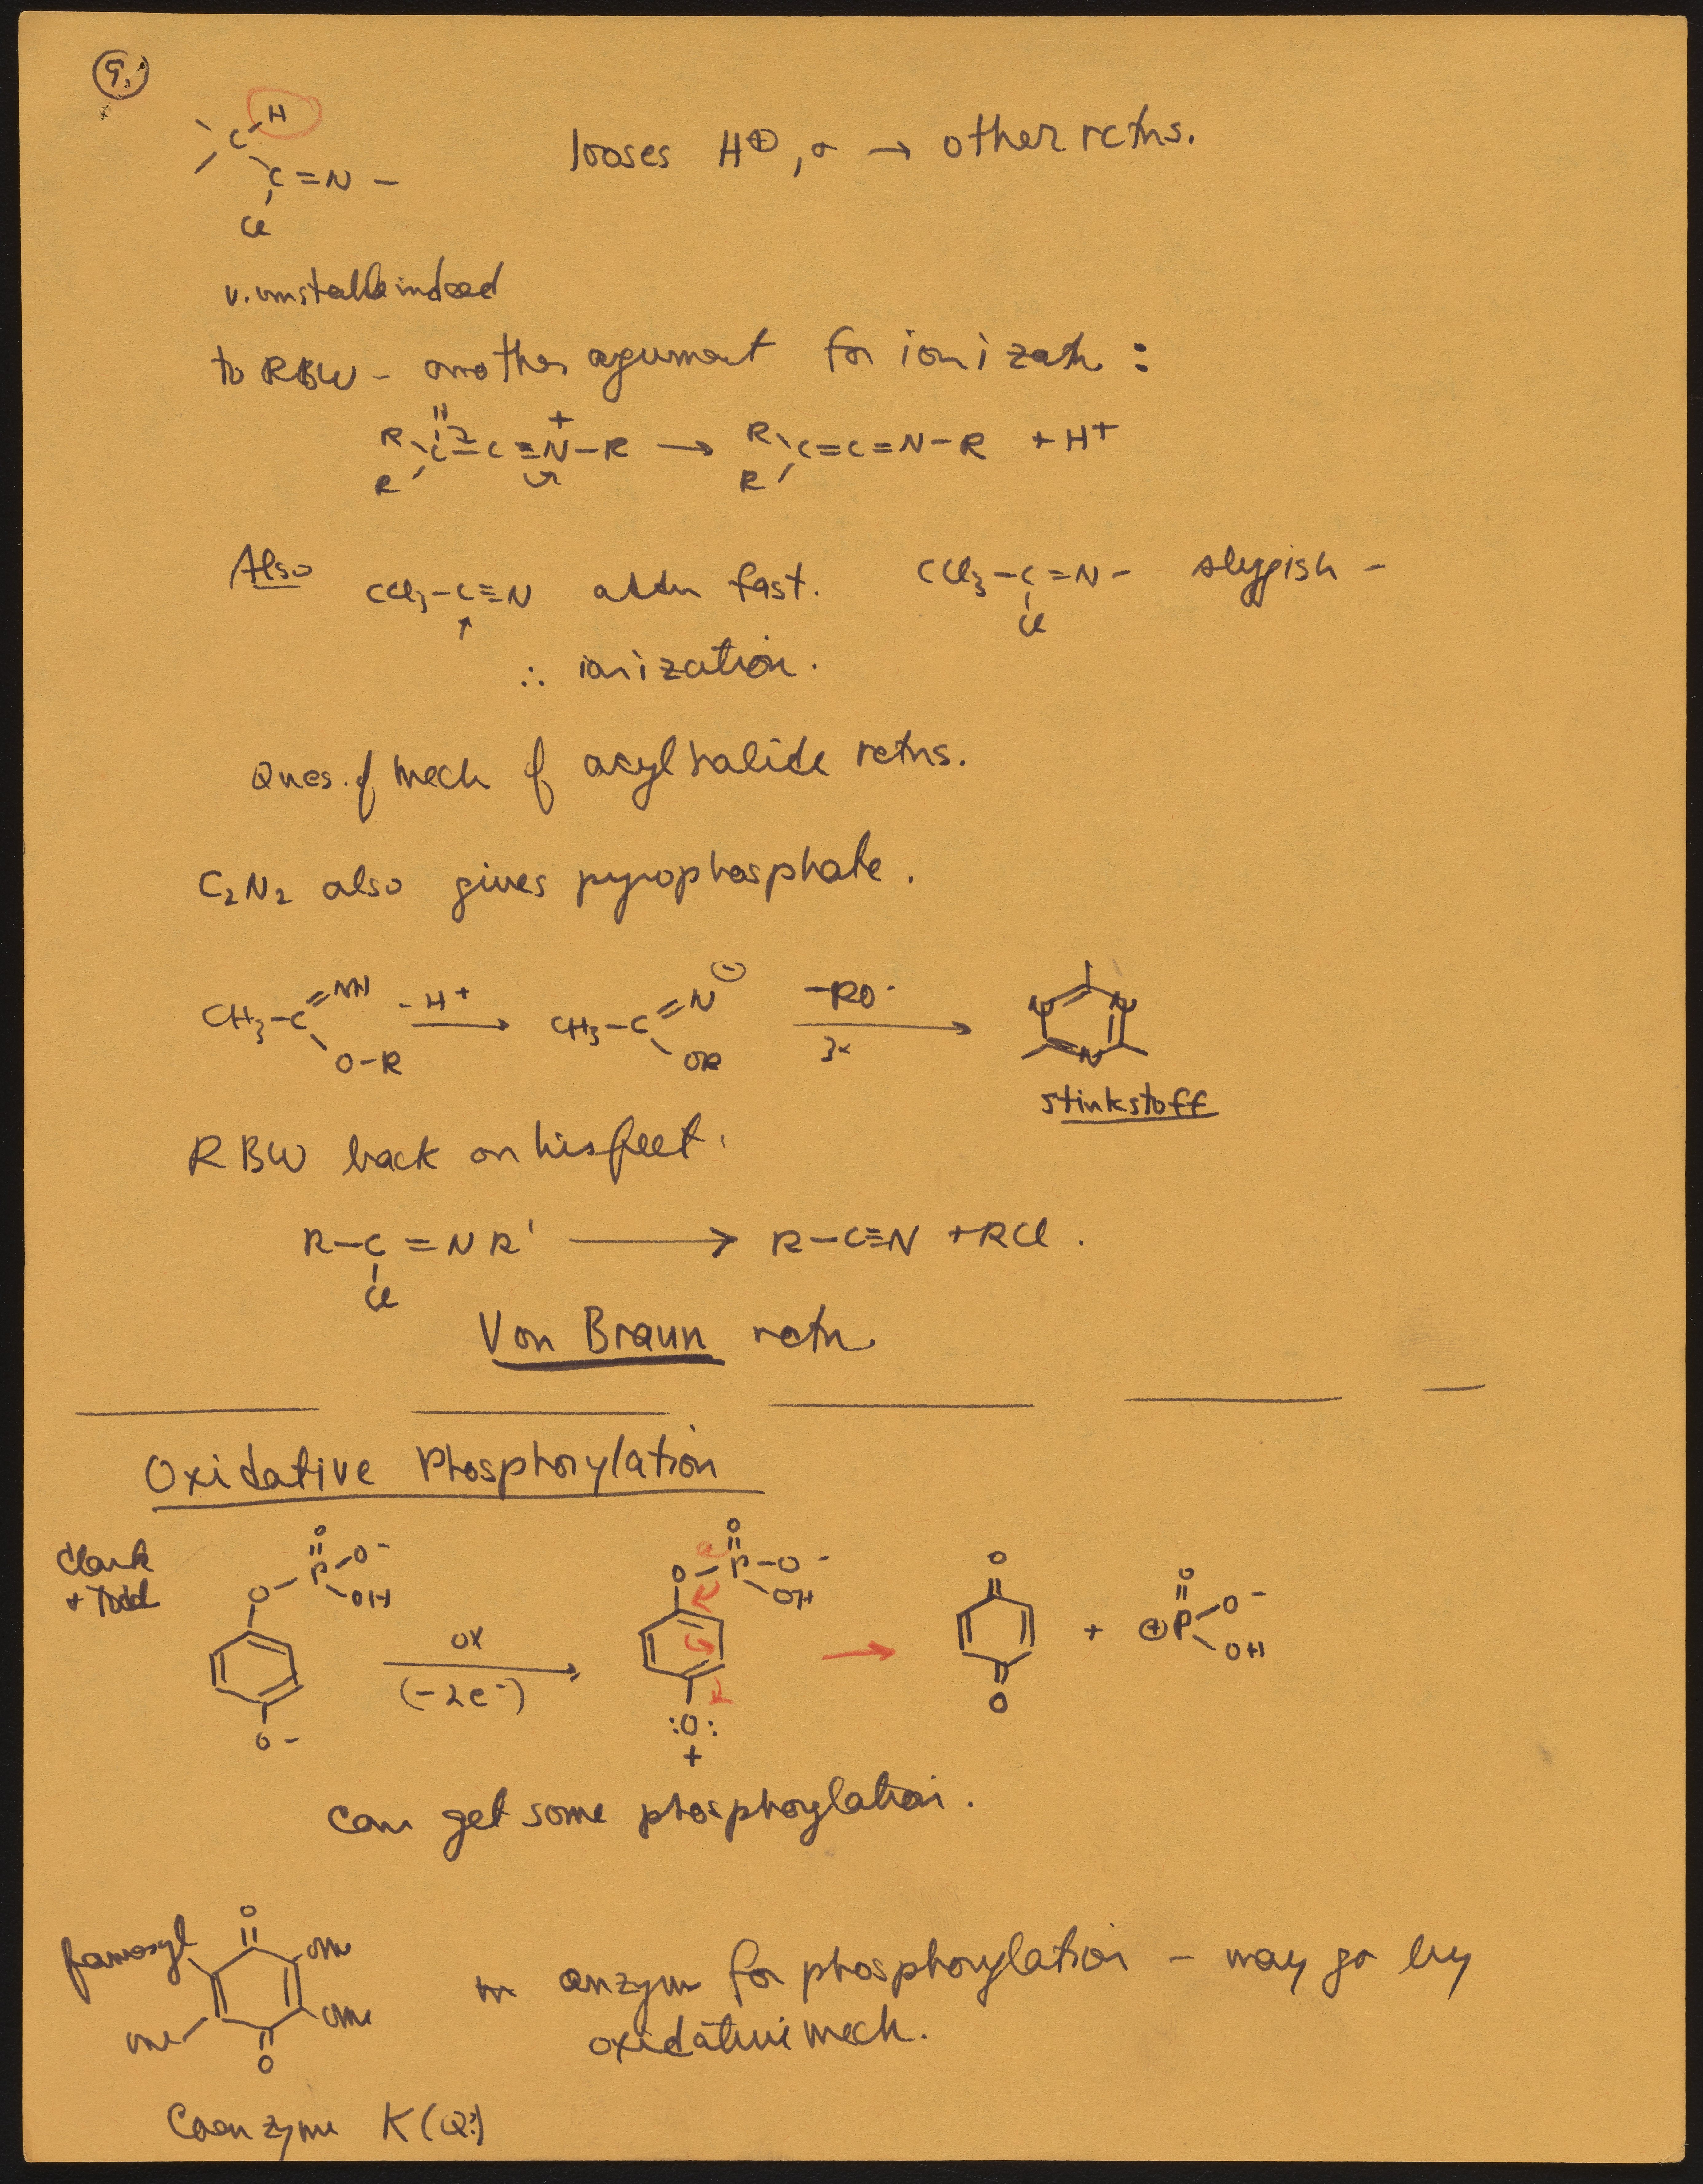 9.
H
C
C=N-
Cl
looses H⊕, σ → other rctns.
v. unstable indeed
to RBW - another agument for ionizatn :
R H +
C-C≡N-R → R C=C=N-R + H+
R R
Also CCl3-C≡N addn fast. CCl3-C=N- sluggish -
↑ Cl
∴ ionization.
Ques. of mech of acyl halide rctns.
C2N2 also gives pyrophosphate.
CH3-C=NH -H+ → CH3-C=N⊖ -RO· → N N
O-R OR 3x N
stinkstoff
RBW back on his feet.
R-C=NR' → R-C≡N + RCl.
Cl
Von Braun rctn
Oxidative Phosphorylation
Clark
+ Todd
O O
O-P-O- O-P-O- O O
OH OH
OX → → + ⊕P-O-
(-2e-) OH
O- :O: O
+
can get some phosphorylation.
O
farnosyl OMe
OMe
Me
O
in enzym for phosphorylation - may go by
oxidative mech.
Coenzyme K (Q?)